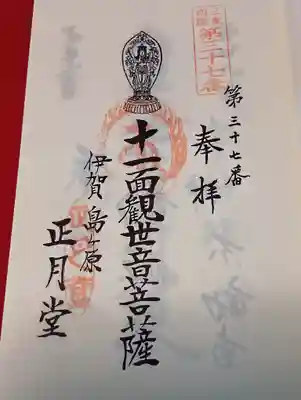 第三十七番
第三十七番
奉拝
十一面観世音菩薩
伊賀島ヶ原
正月堂